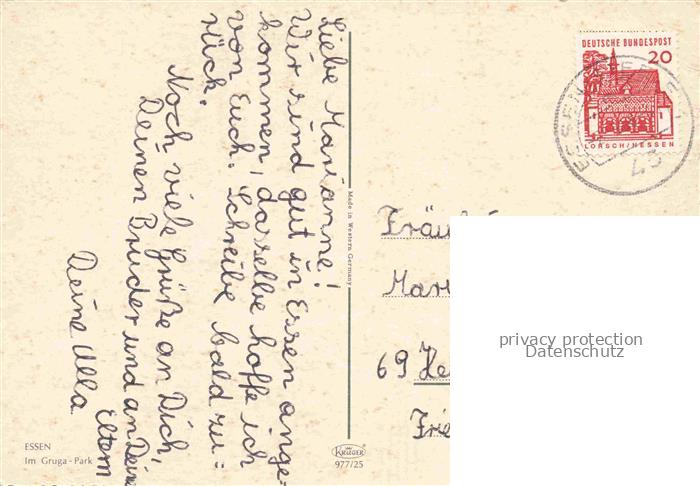 Liebe Marianne!
Wir sind gut in Essen ange-
kommen, dasselbe hoffe ich
von Euch. Schreibe bald zu=
rück.
Noch viele Grüße an Dich,
Deinen Bruder und an Deine
Eltern
Deine Ulla
ESSEN
Im Gruga-Park
Made in Western Germany
KRÜGER
977/25
DEUTSCHE BUNDESPOST
20
LORSCH/HESSEN
ESSEN
Fräu
Mar
69 He
Frie
privacy protection
Datenschutz